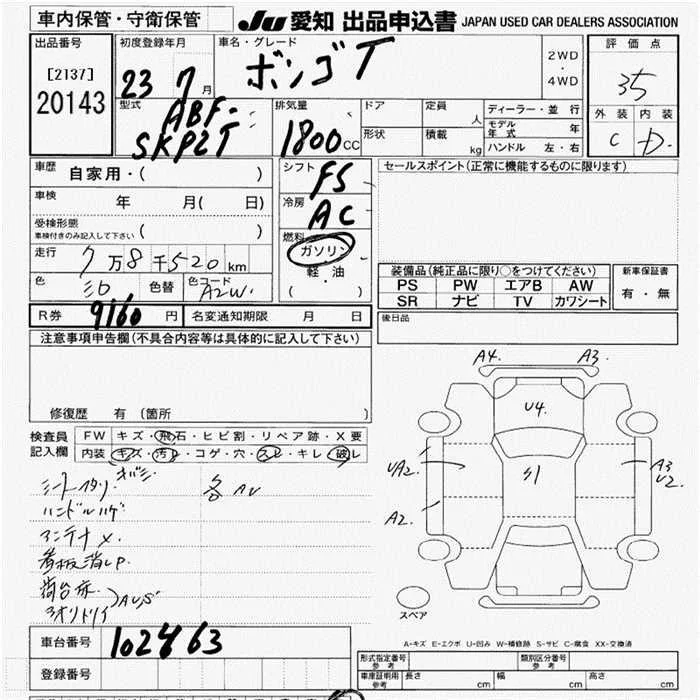 車内保管・守衛保管
JU 愛知 出品申込書 JAPAN USED CAR DEALERS ASSOCIATION
出品番号
[2137]
20143
初度登録年月
23 7月
車名・グレード
ボンゴ T
2WD
・
4WD
評価点
35
外装 内装
C D
型式
ABF-
SKP2T
排気量
1800cc
ドア
形状
定員 人
積載 kg
ディーラー・並行
モデル年式 年
ハンドル 左・右
車歴
自家用・( )
車検
年 月( 日)
受検形態
車検付きのみ記入して下さい ( )
走行
7万8千520km
色
シロ
色替
色コード
A2W
シフト
F5
冷房
AC
燃料
ガソリン
軽・油
( )
セールスポイント(正常に機能するものに限ります)
装備品(純正品に限り○をつけてください)
PS PW エアB AW
SR ナビ TV カワシート
新車保証書
有・無
R券 9160円
名変通知期限 月 日
後日品
注意事項申告欄(不具合内容等は具体的に記入して下さい)
修復歴 有(箇所
検査員
記入欄
FW キズ・飛石・ヒビ割・リペア跡・X要
内装 キズ・汚レ・コゲ・穴・スレ・キレ・破レ
各AU
ハンドルハゲ
アンテナX
看板消しP
荷台床
アオリトリイ
A4 A3
U4
S1
UA2
A2
A3
U2
スペア
A-キズ E-エクボ U-凹み W-補修跡 S-サビ C-腐食 XX-交換済
車台番号
102463
登録番号
形式指定番号
参考
類別区分番号
参考
車庫証明用
参考
長さ cm
幅 cm
高さ cm